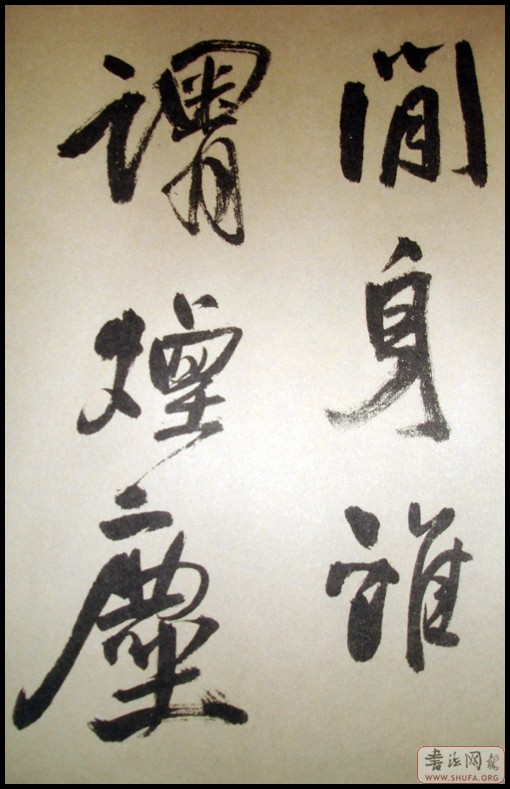 閒身誰
謂煙塵
書法网
WWW.SHUFA.ORG